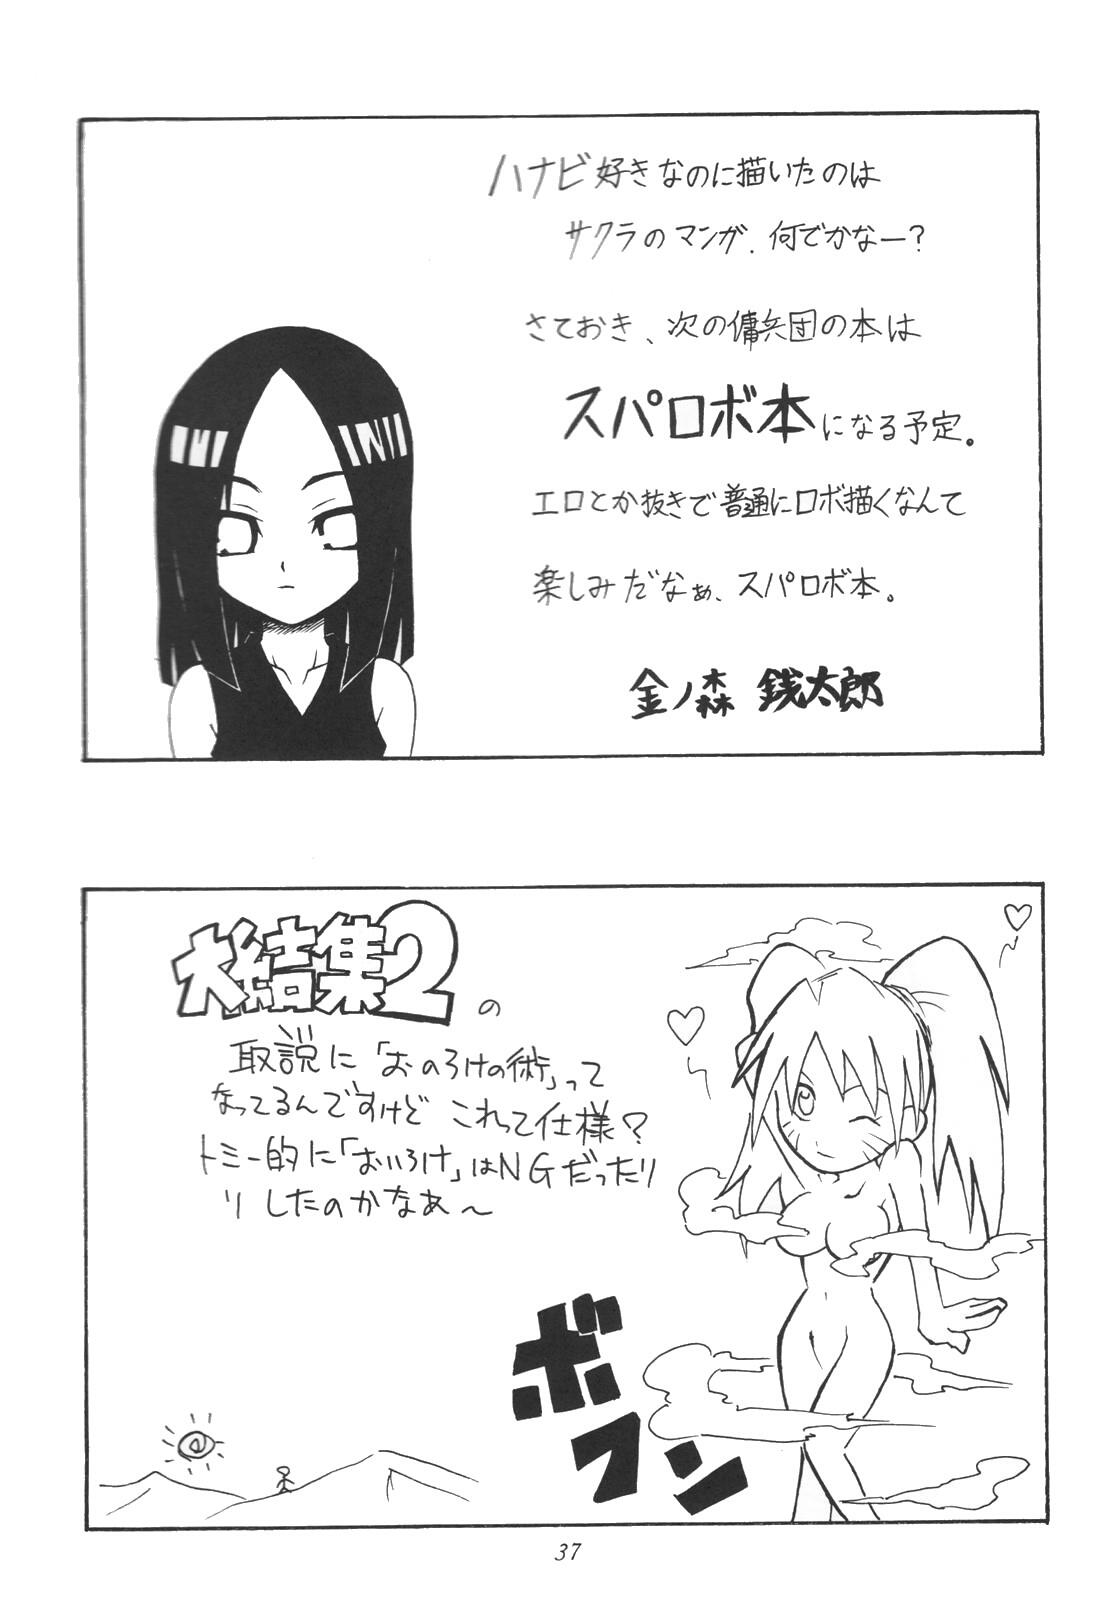 ハナビ好きなのに描いたのは
サクラのマンガ、何でかなー?
さておき、次の傭兵団の本は
スパロボ本になる予定。
エロとか抜きで普通にロボ描くなんて
楽しみだなぁ、スパロボ本。
金ノ森 銭太郎
木結集2の
取説に「おのろけの術」って
なってるんですけど これって仕様?
トミー的に「おいろけ」はNGだったり
リ したのかなあ〜
ボフン
37